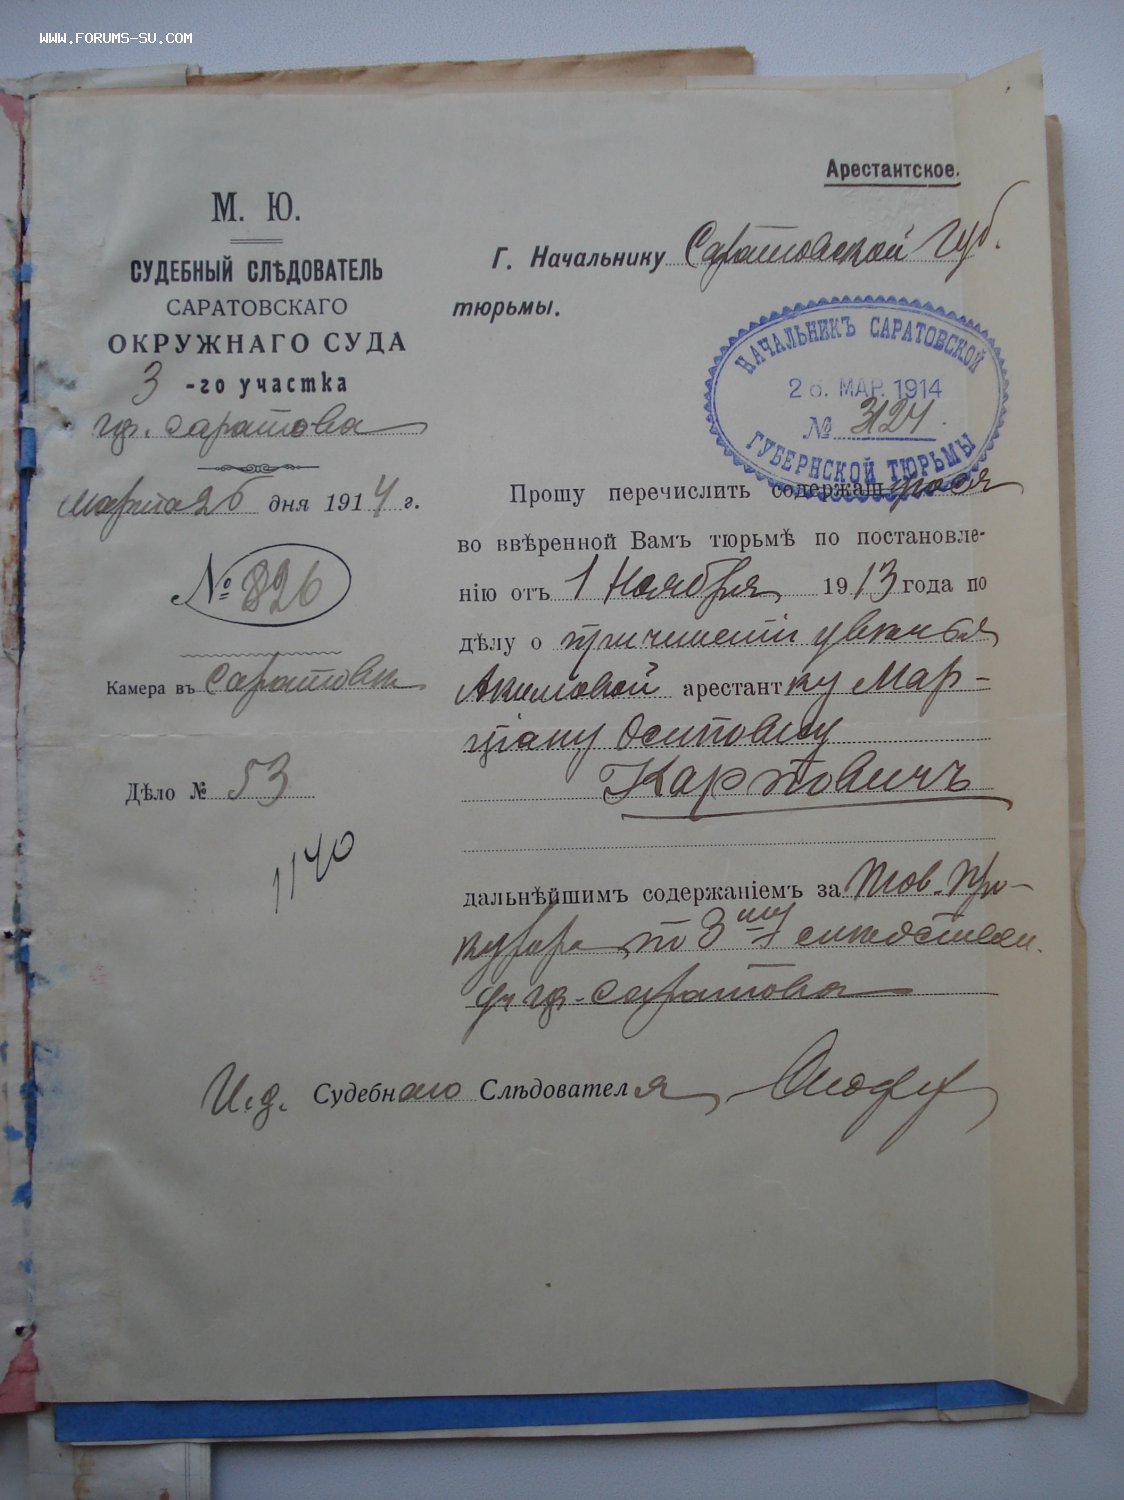 WWW.FORUMS-SU.COM
Арестантское.
М. Ю.
СУДЕБНЫЙ СЛѢДОВАТЕЛЬ
САРАТОВСКАГО
ОКРУЖНАГО СУДА
3 -го участка
гор. Саратова
Марта 26 дня 1914 г.
№ 826
Камера въ Саратовѣ
Дѣло № 53
1140
Г. Начальнику Саратовской Губ.
тюрьмы.
НАЧАЛЬНИКЪ САРАТОВСКОЙ
26. МАР. 1914
№ 3124
ГУБЕРНСКОЙ ТЮРЬМЫ
Прошу перечислить содержащуюся
во ввѣренной Вамъ тюрьмѣ по постановле-
нію отъ 1 Ноября 1913 года по
дѣлу о причиненіи увѣчья
Акимовой арестантку Мар-
ціану Осиповну
Карповичъ
дальнѣйшимъ содержаніемъ за Тов. Про-
курора по 3му
гор. Саратова
И.д. Судебнаго Слѣдователя